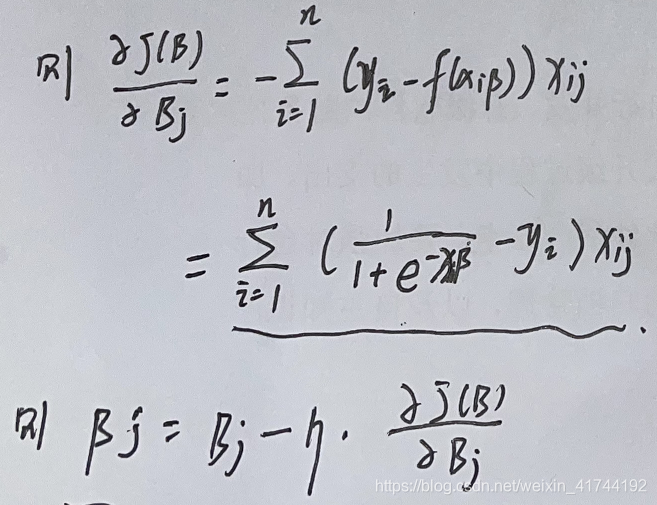 则 ∂J(β)/∂βj = -∑_{i=1}^{n} (yi - f(xiβ)) xij
= ∑_{i=1}^{n} (1/(1+e^{-xiβ}) - yi) xij .
则 βj = βj - η · ∂J(β)/∂βj
https://blog.csdn.net/weixin_41744192